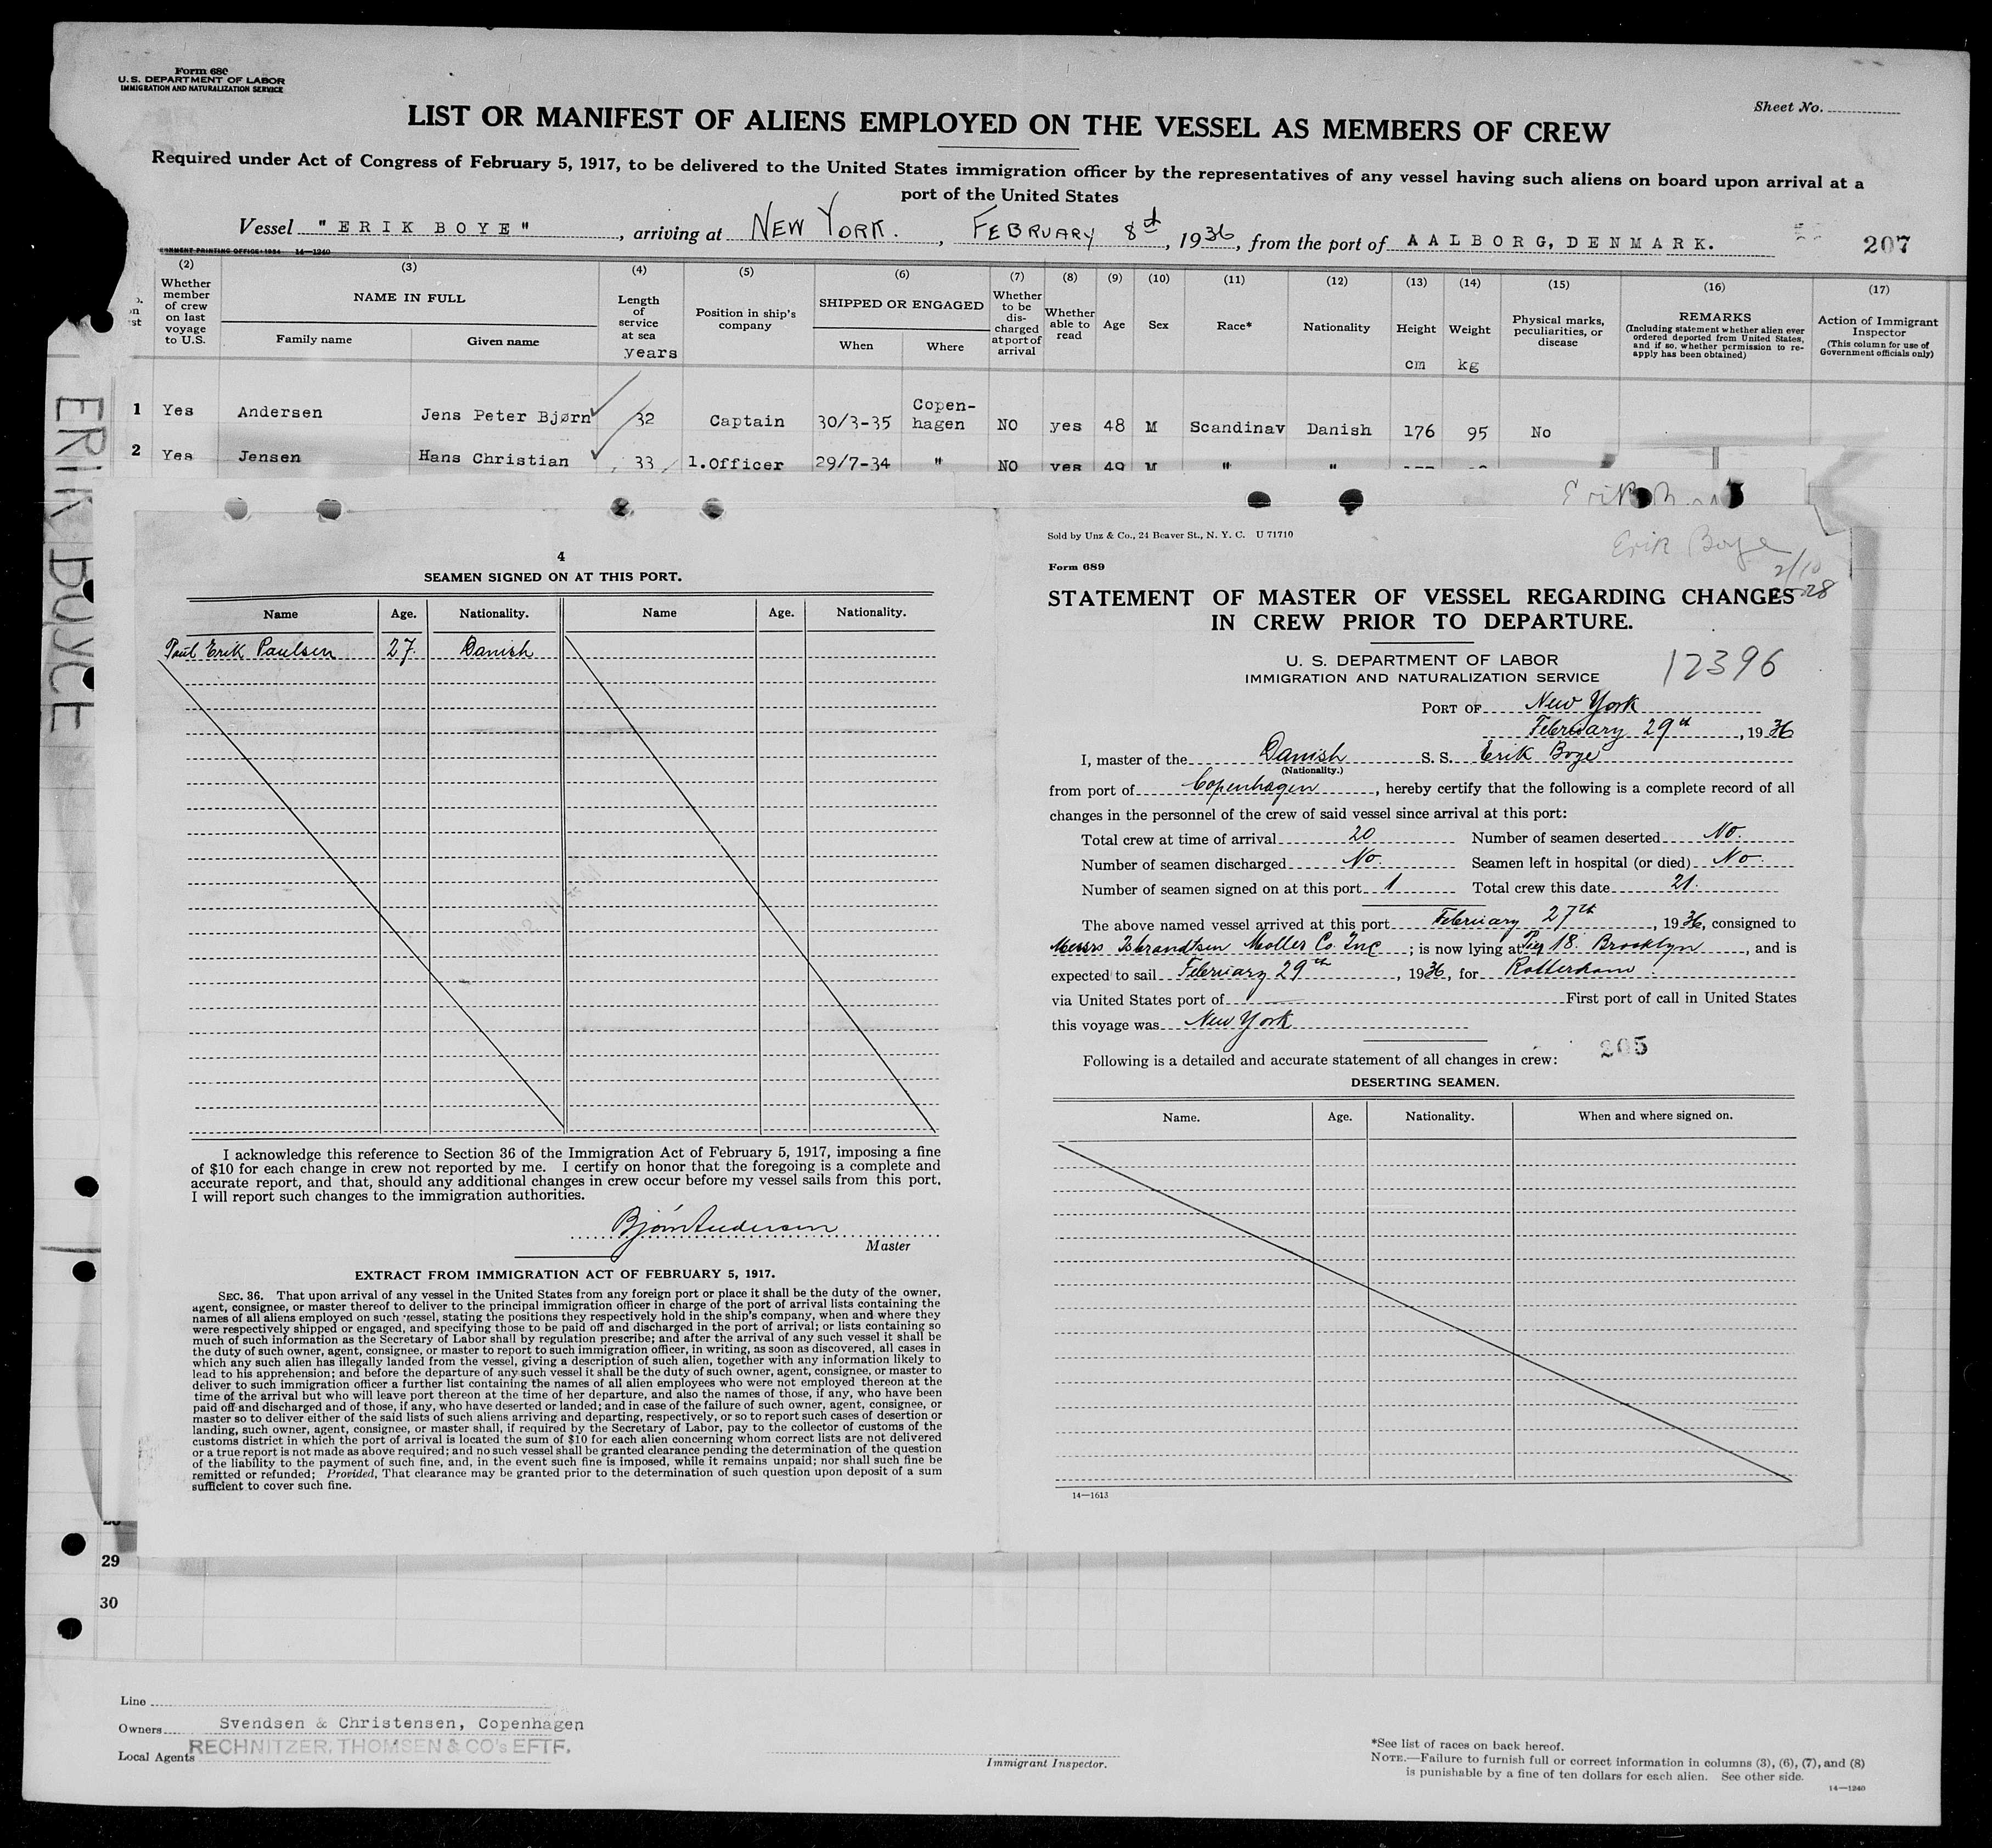 Form 680
U. S. DEPARTMENT OF LABOR
IMMIGRATION AND NATURALIZATION SERVICE
Sheet No.
LIST OR MANIFEST OF ALIENS EMPLOYED ON THE VESSEL AS MEMBERS OF CREW
Required under Act of Congress of February 5, 1917, to be delivered to the United States immigration officer by the representatives of any vessel having such aliens on board upon arrival at a
port of the United States
Vessel "ERIK BOYE", arriving at NEW YORK., FEBRUARY 8d, 1936, from the port of AALBORG, DENMARK. 207
14—1240
(2) (3) (4) (5) (6) (7) (8) (9) (10) (11) (12) (13) (14) (15) (16) (17)
Whether member of crew on last voyage to U.S.
NAME IN FULL
Family name Given name
Length of service at sea
years
Position in ship's company
SHIPPED OR ENGAGED
When Where
Whether to be discharged at port of arrival
Whether able to read
Age
Sex
Race*
Nationality
Height
cm
Weight
kg
Physical marks, peculiarities, or disease
REMARKS
(Including statement whether alien ever ordered deported from United States, and if so, whether permission to reapply has been obtained)
Action of Immigrant Inspector
(This column for use of Government officials only)
1 Yes Andersen Jens Peter Bjørn 32 Captain 30/3-35 Copenhagen NO yes 48 M Scandinav Danish 176 95 No
2 Yes Jensen Hans Christian 33 1.Officer 29/7-34 " NO yes 49 M " "
ERIK BOYE
4
SEAMEN SIGNED ON AT THIS PORT.
Name Age. Nationality. Name Age. Nationality.
Paul Erik Paulsen 27. Danish
I acknowledge this reference to Section 36 of the Immigration Act of February 5, 1917, imposing a fine
of $10 for each change in crew not reported by me. I certify on honor that the foregoing is a complete and
accurate report, and that, should any additional changes in crew occur before my vessel sails from this port,
I will report such changes to the immigration authorities.
Bjørn Andersen
Master
EXTRACT FROM IMMIGRATION ACT OF FEBRUARY 5, 1917.
SEC. 36. That upon arrival of any vessel in the United States from any foreign port or place it shall be the duty of the owner,
agent, consignee, or master thereof to deliver to the principal immigration officer in charge of the port of arrival lists containing the
names of all aliens employed on such vessel, stating the positions they respectively hold in the ship's company, when and where they
were respectively shipped or engaged, and specifying those to be paid off and discharged in the port of arrival; or lists containing so
much of such information as the Secretary of Labor shall by regulation prescribe; and after the arrival of any such vessel it shall be
the duty of such owner, agent, consignee, or master to report to such immigration officer, in writing, as soon as discovered, all cases in
which any such alien has illegally landed from the vessel, giving a description of such alien, together with any information likely to
lead to his apprehension; and before the departure of any such vessel it shall be the duty of such owner, agent, consignee, or master to
deliver to such immigration officer a further list containing the names of all alien employees who were not employed thereon at the
time of the arrival but who will leave port thereon at the time of her departure, and also the names of those, if any, who have been
paid off and discharged and of those, if any, who have deserted or landed; and in case of the failure of such owner, agent, consignee, or
master so to deliver either of the said lists of such aliens arriving and departing, respectively, or so to report such cases of desertion or
landing, such owner, agent, consignee, or master shall, if required by the Secretary of Labor, pay to the collector of customs of the
customs district in which the port of arrival is located the sum of $10 for each alien concerning whom correct lists are not delivered
or a true report is not made as above required; and no such vessel shall be granted clearance pending the determination of the question
of the liability to the payment of such fine, and, in the event such fine is imposed, while it remains unpaid; nor shall such fine be
remitted or refunded; Provided, That clearance may be granted prior to the determination of such question upon deposit of a sum
sufficient to cover such fine.
Sold by Unz & Co., 24 Beaver St., N. Y. C. U 71710
Erik Boye
2/10
28
Form 689
STATEMENT OF MASTER OF VESSEL REGARDING CHANGES
IN CREW PRIOR TO DEPARTURE.
U. S. DEPARTMENT OF LABOR
IMMIGRATION AND NATURALIZATION SERVICE
12396
PORT OF New York
February 29th, 1936
I, master of the Danish S. S. Erik Boye
(Nationality.)
from port of Copenhagen, hereby certify that the following is a complete record of all
changes in the personnel of the crew of said vessel since arrival at this port:
Total crew at time of arrival 20 Number of seamen deserted No.
Number of seamen discharged No. Seamen left in hospital (or died) No.
Number of seamen signed on at this port 1 Total crew this date 21.
The above named vessel arrived at this port February 27th, 1936, consigned to
Messrs Isbrandtsen Moller Co. Inc; is now lying at Pier 18. Brooklyn, and is
expected to sail February 29th, 1936, for Rotterdam.
via United States port of First port of call in United States
this voyage was New York
Following is a detailed and accurate statement of all changes in crew: 205
DESERTING SEAMEN.
Name. Age. Nationality. When and where signed on.
14—1613
29
30
Line
Owners Svendsen & Christensen, Copenhagen
Local Agents RECHNITZER, THOMSEN & CO's EFTF.
Immigrant Inspector.
*See list of races on back hereof.
NOTE.—Failure to furnish full or correct information in columns (3), (6), (7), and (8)
is punishable by a fine of ten dollars for each alien. See other side.
14—1240